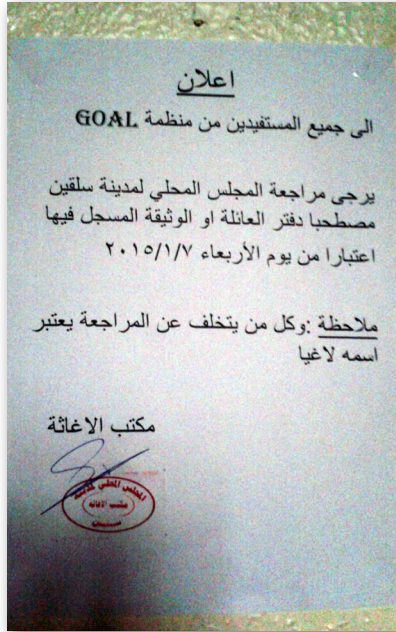 اعلان
الى جميع المستفيدين من منظمة GOAL
يرجى مراجعة المجلس المحلي لمدينة سلقين
مصطحبا دفتر العائلة او الوثيقة المسجل فيها
اعتبارا من يوم الأربعاء ٢٠١٥/١/٧
ملاحظة :وكل من يتخلف عن المراجعة يعتبر
اسمه لاغيا
مكتب الاغاثة
المجلس المحلي لمدينة
مكتب الاغاثة